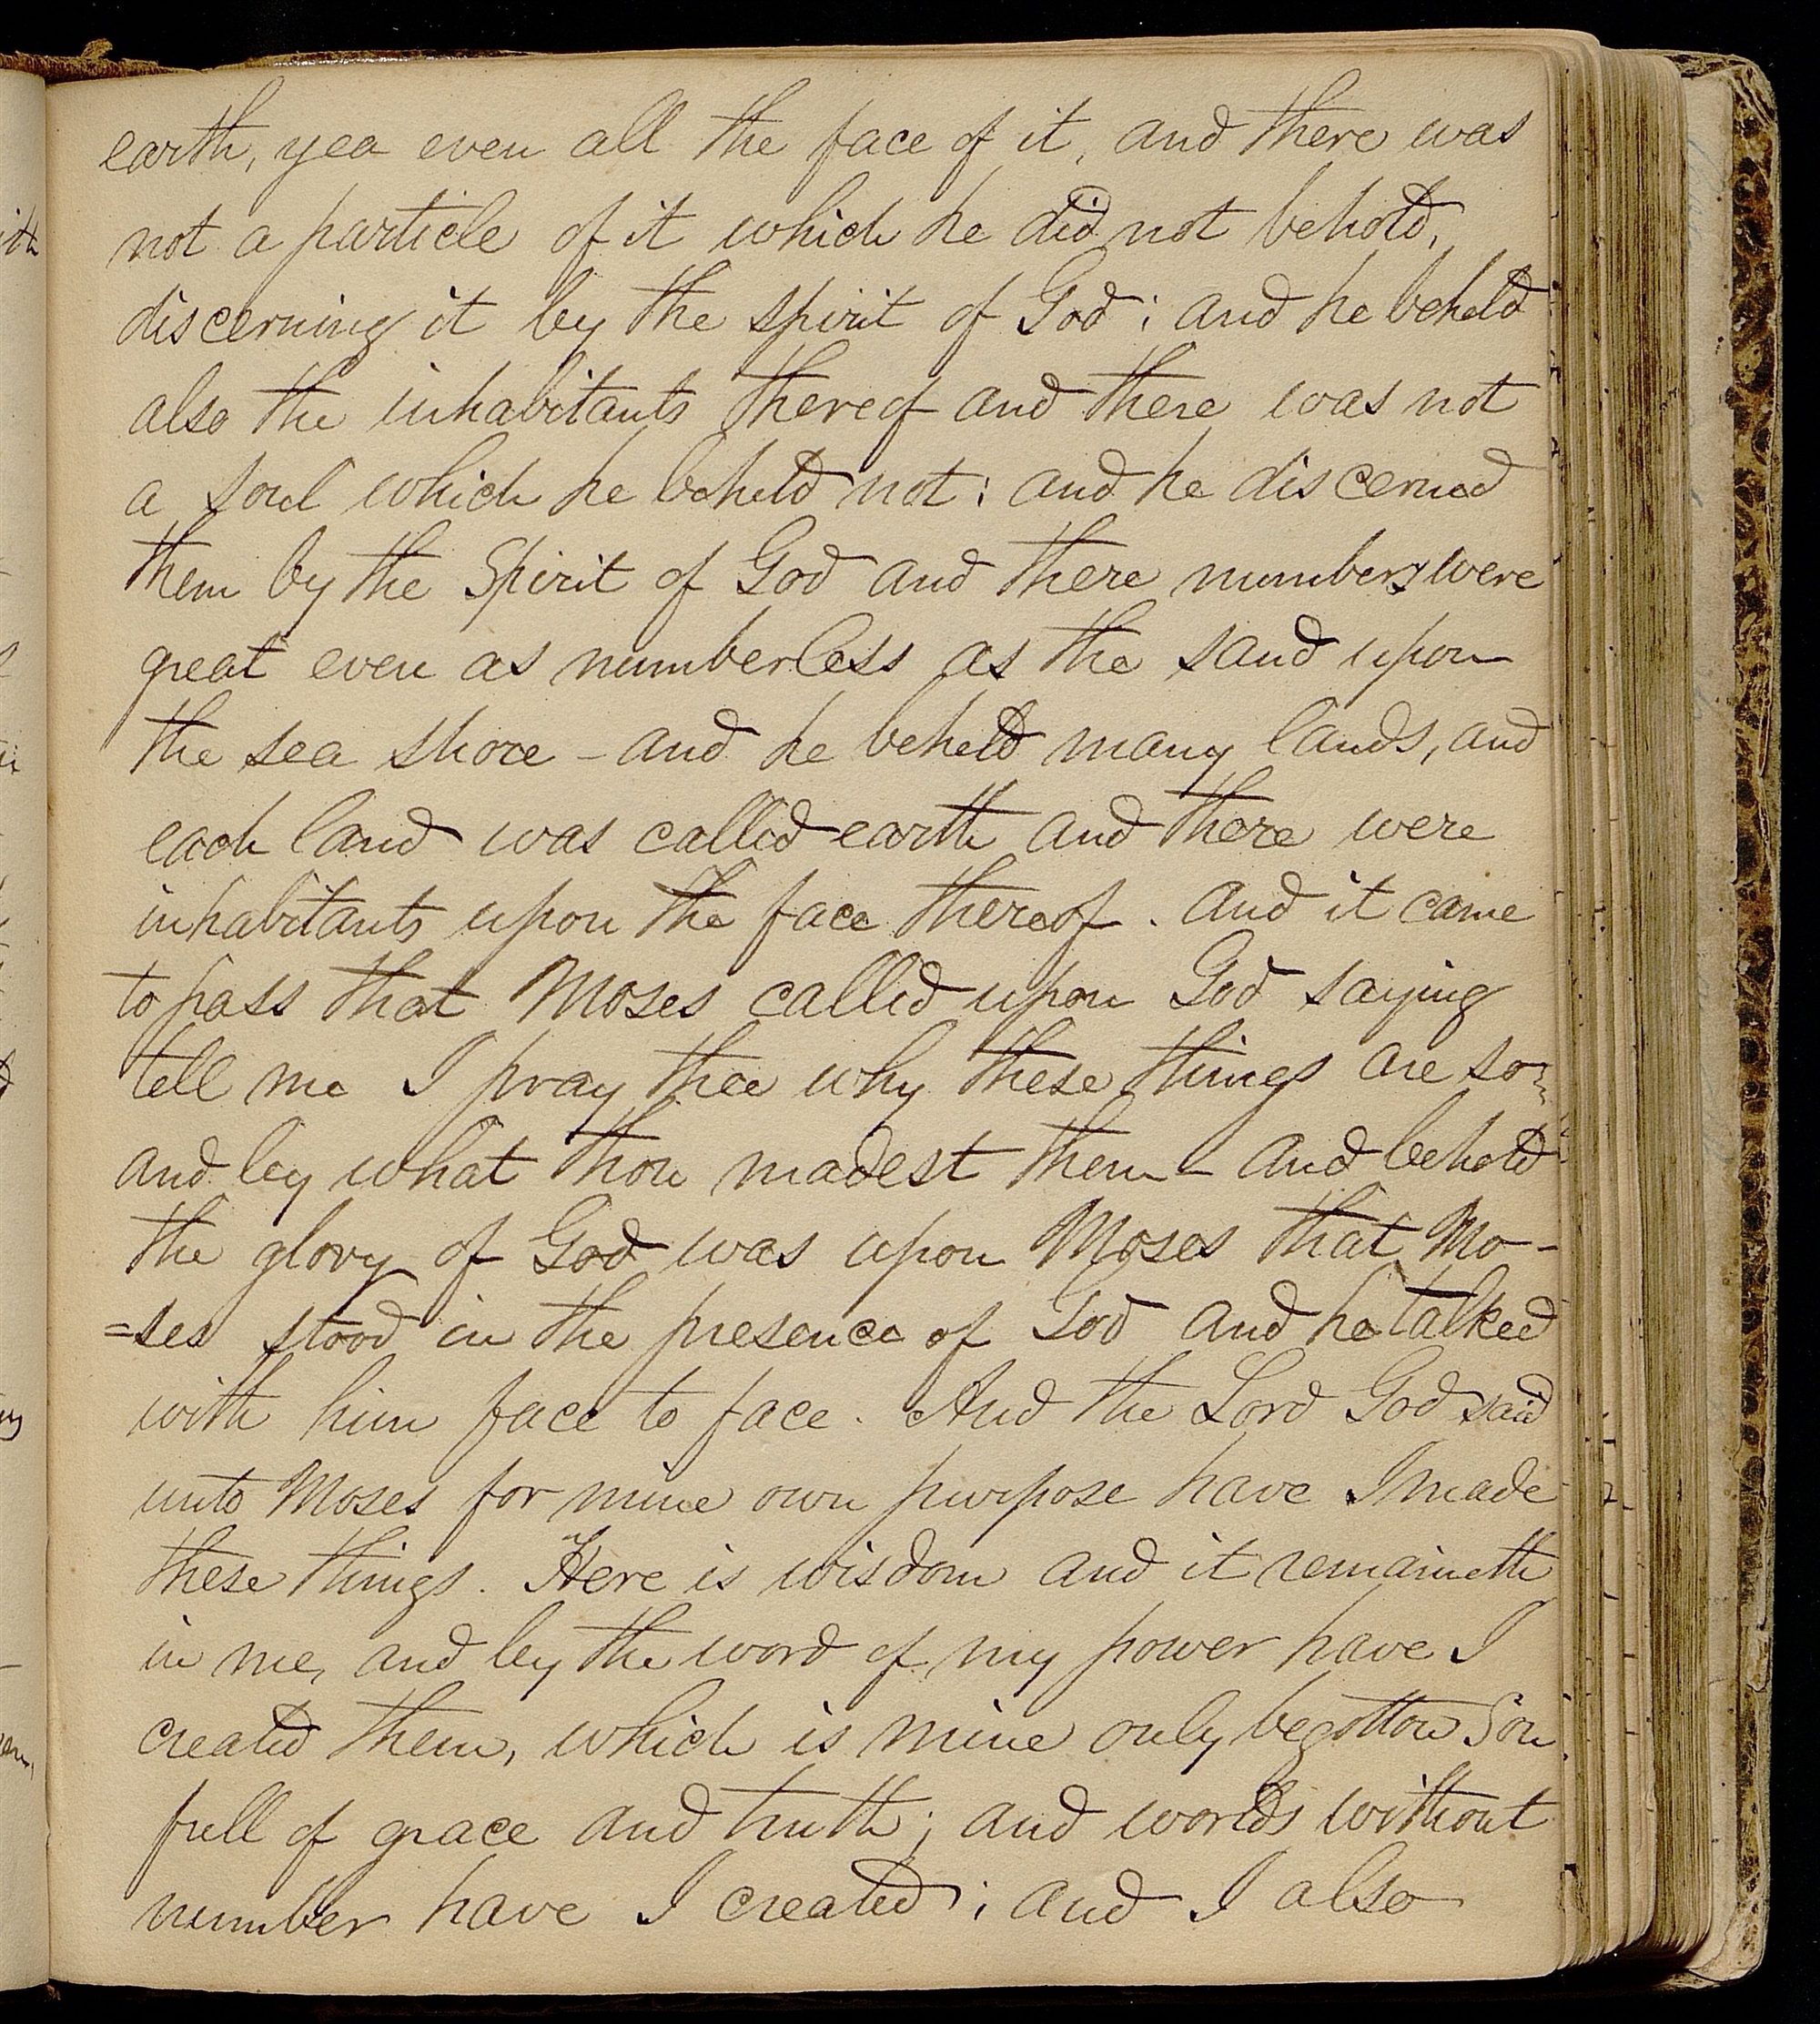 earth, yea even all the face of it, and there was
not a particle of it which he did not behold,
discerning it by the spirit of God; and he beheld
also the inhabitants thereof and there was not
a soul which he beheld not; and he discerned
them by the Spirit of God and there numbers were
great even as numberless as the sand upon
the sea shore - and he beheld many lands, and
each land was called earth and there were
inhabitants upon the face thereof. and it came
to pass that Moses called upon God saying
tell me I pray thee why these things are so
and by what thou madest them - and behold
the glory of God was upon Moses that Mo-
=ses stood in the presence of God and he talked
with him face to face. And the Lord God said
unto Moses for mine own purpose have I made
these things. Here is wisdom and it remaineth
in me, and by the word of my power have I
created them, which is mine only begotton Son
full of grace and truth; and worlds without
number have I created; and I also